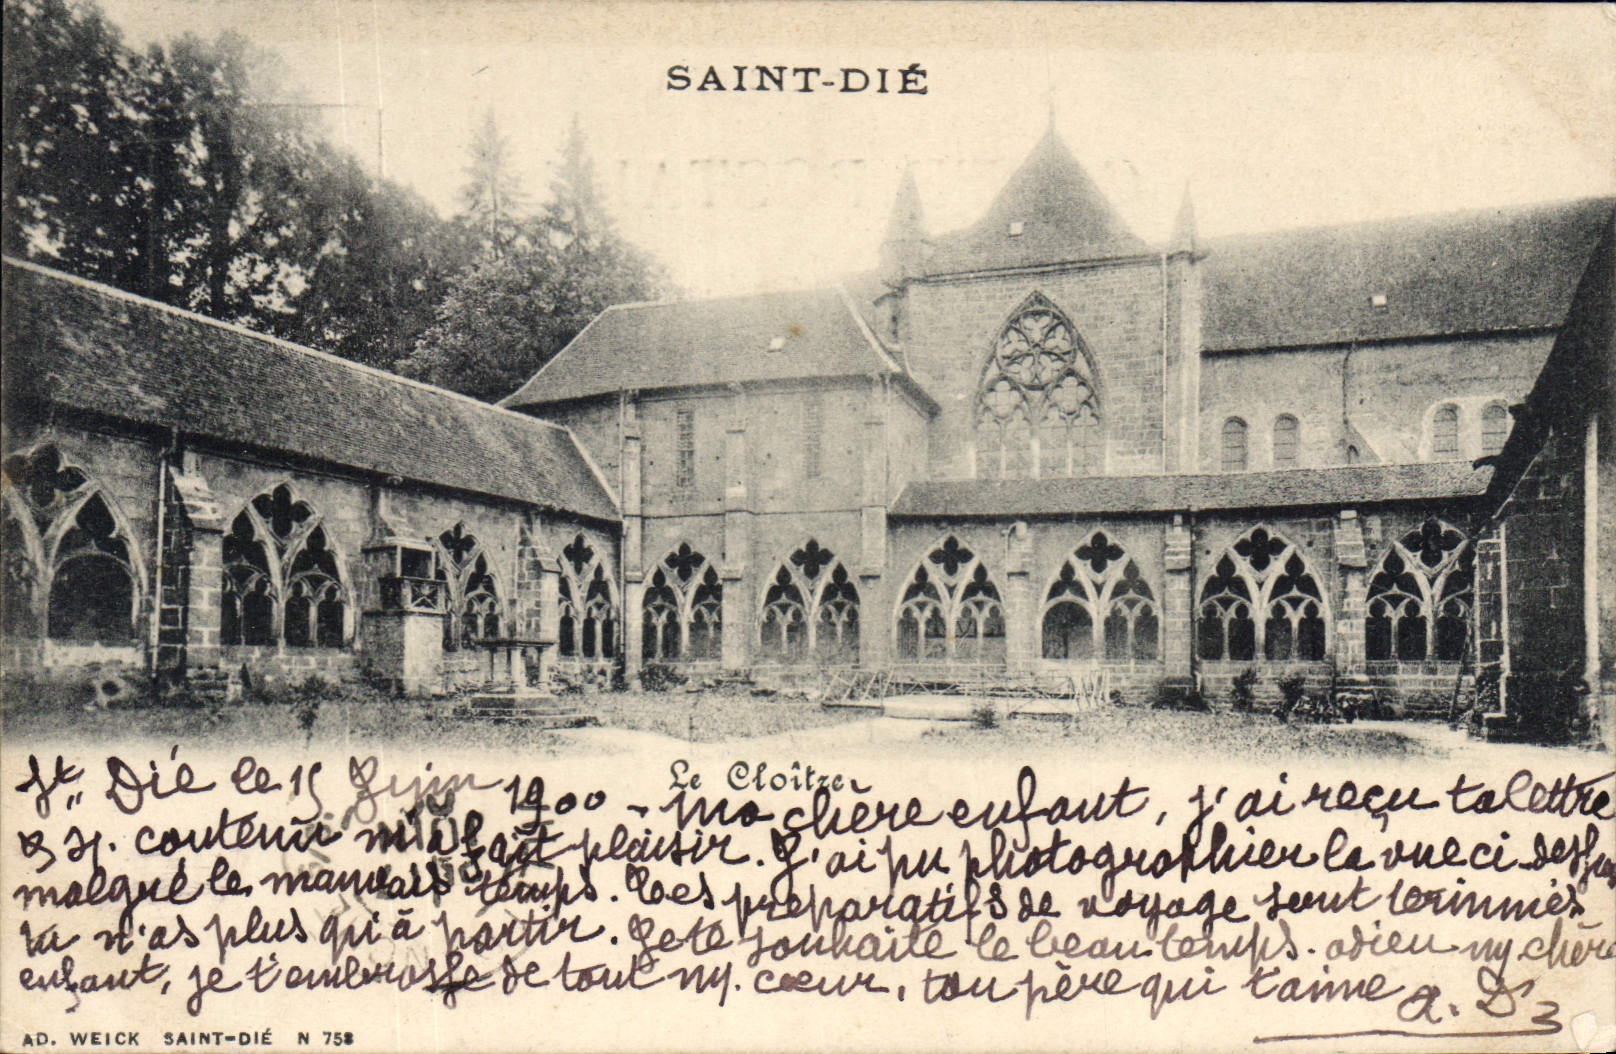 SAINT-DIÉ
Le Cloître
St Dié le 15 Juin 1900 - Ma chère enfant, j'ai reçu ta lettre
contenu m'a fait plaisir. J'ai pu photographier la vue ci-dessus
malgré le mauvais temps. Tes préparatifs de voyage sont terminés
tu n'as plus qu'à partir. Je te souhaite le beau temps. adieu my chère
enfant, je t'embrasse de tout my. cœur, ton père qui t'aime A. D
AD. WEICK SAINT-DIÉ N 758